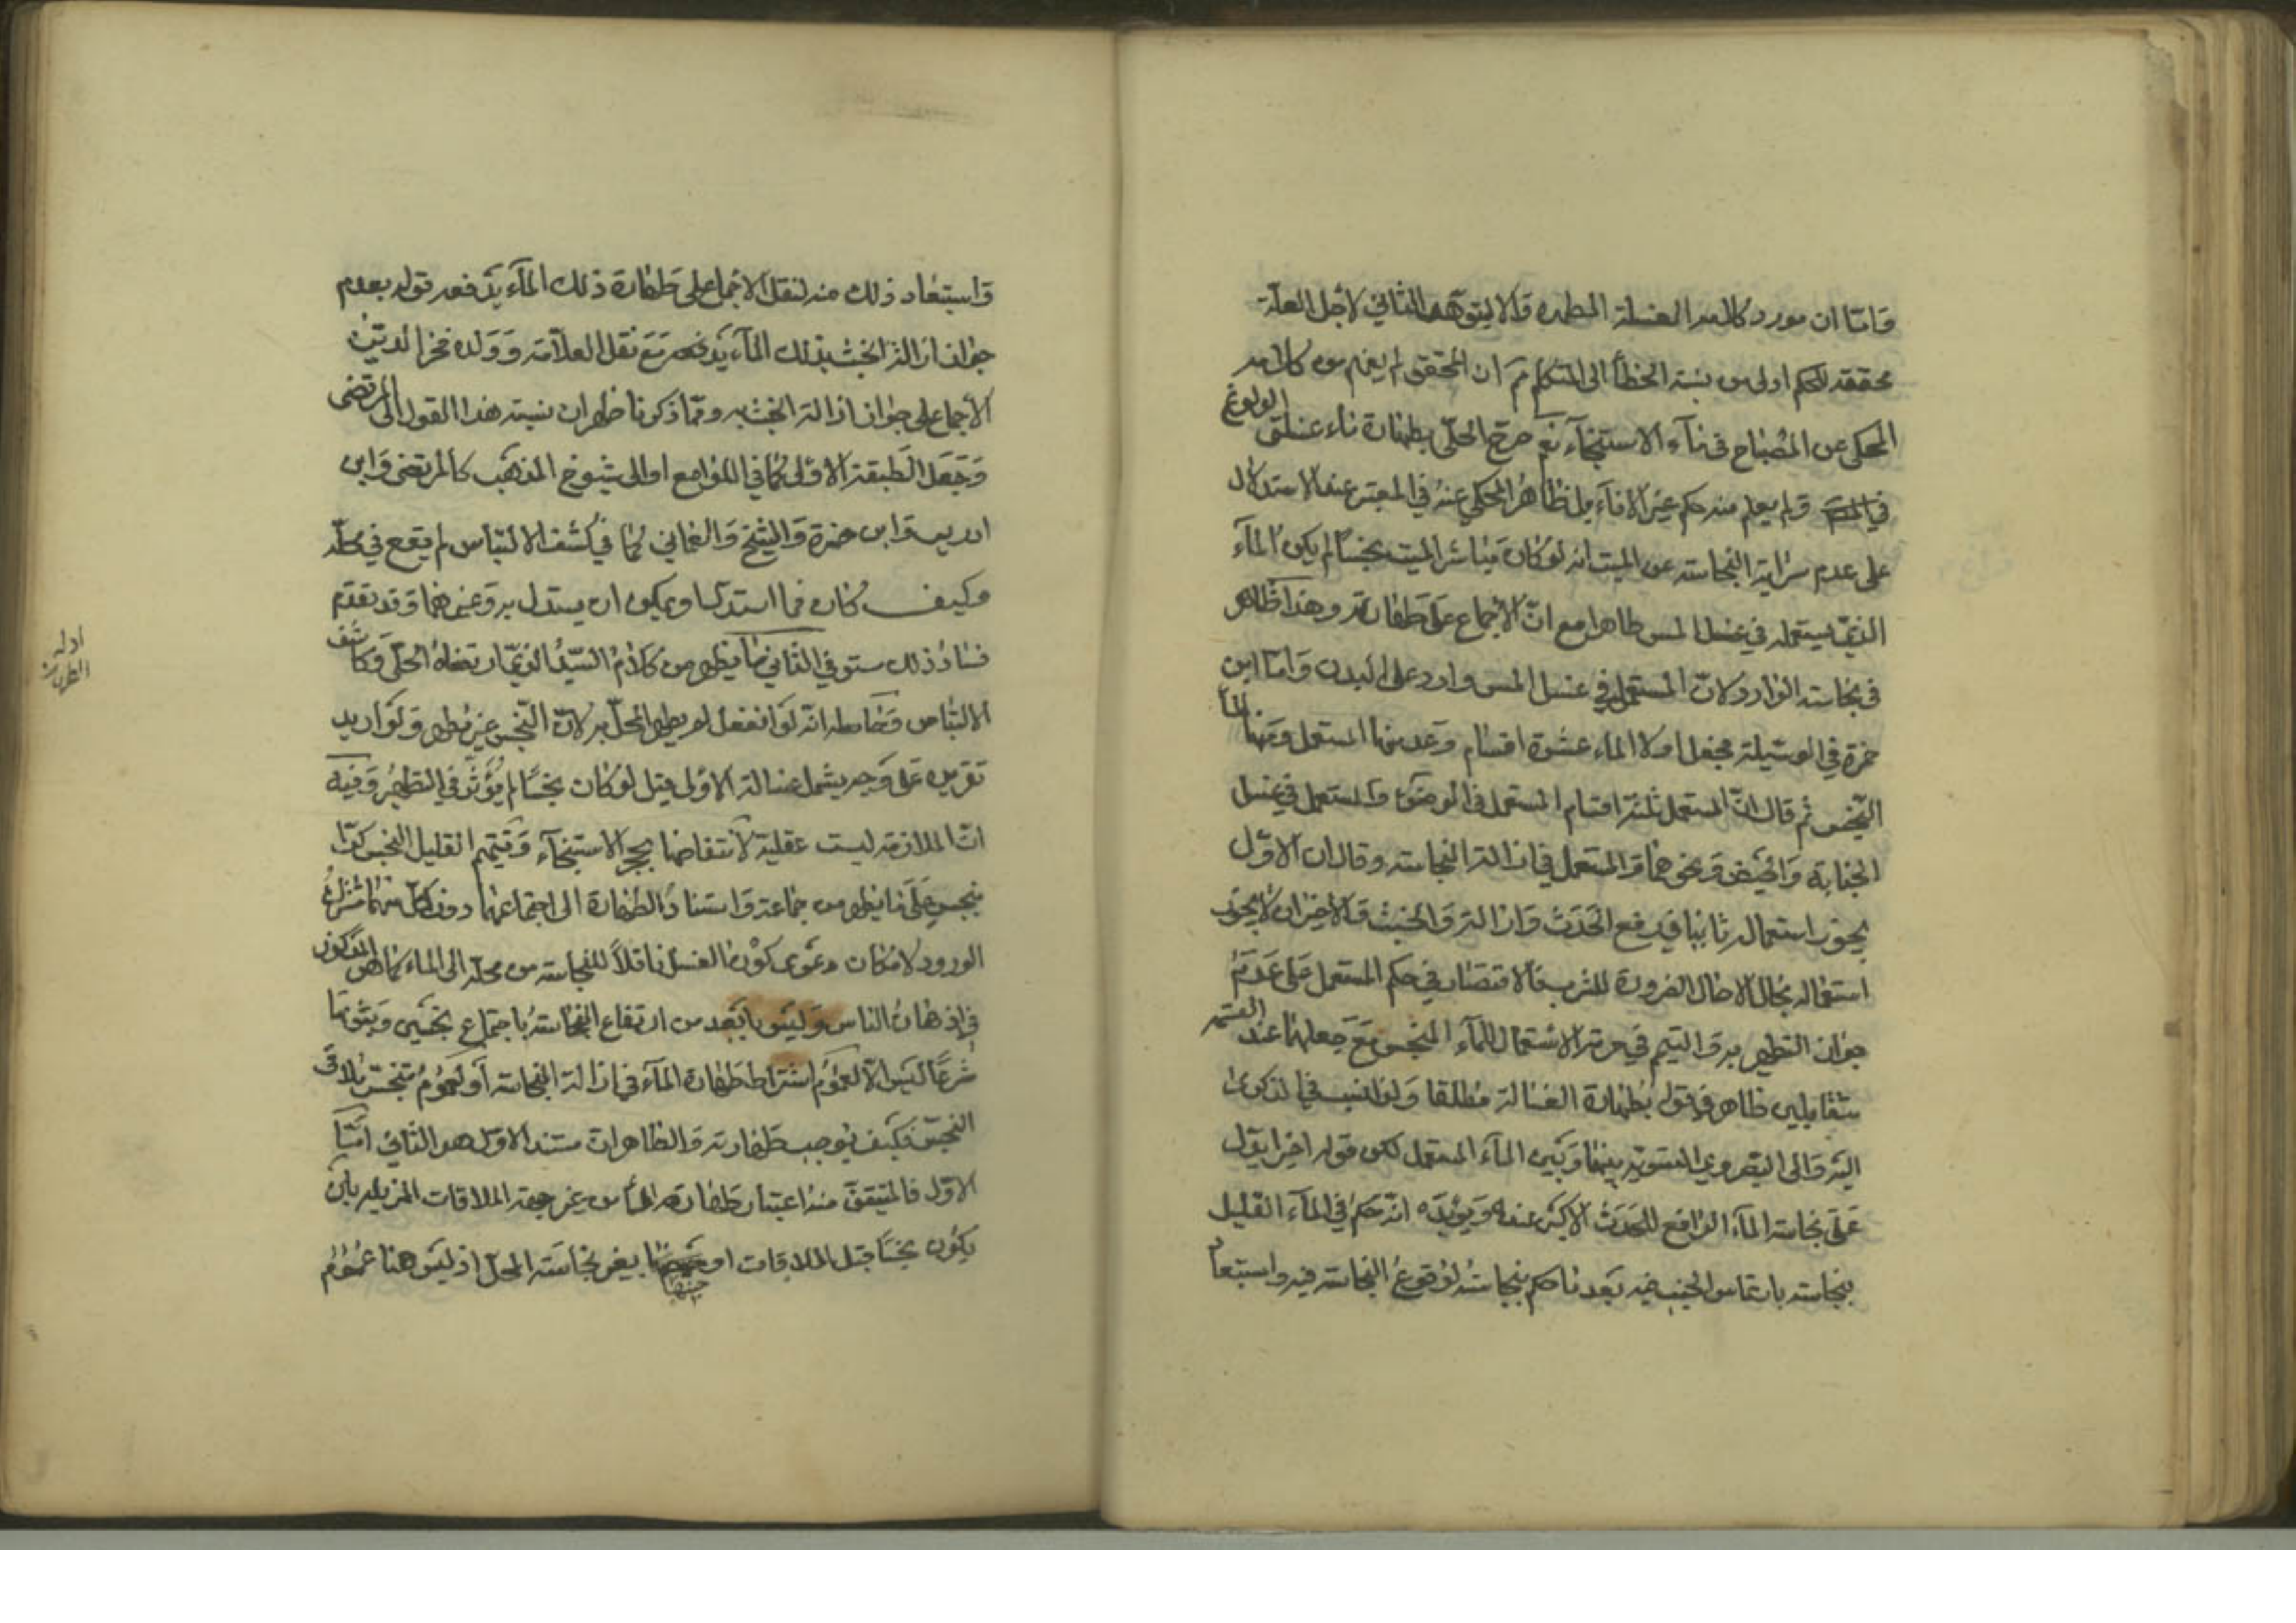 وامّا ان مورد كلامه الغسلة المطهرة والا ليتوهم الثاني لاجل العلّة
محققة للحكم اولى من نسبة الخطأ الى المتكلم ثم ان المحقق لم يفهم من كلامه
المحكى عن المصباح في ماء الاستنجاء نعم صرح الحلّي بطهارة ماء غسلتي الولوغ
ولم يعلم منه حكم غير الاناء بل ظاهر المحكي عنه في المعتبر عند الاستدلال
على عدم سراية النجاسة عن الميت انه لو كان مباشر الميت نجسا لم يكن الماء
الذي يستعمله في غسل المس طاهرا مع انّ الاجماع على طهارته وهذا ظاهر
في نجاسة الوارد لانّ المستعمل في غسل المس وارد على البدن وامّا ابن
حمزة في الوسيلة فجعل اولا الماء عشرة اقسام وعد منها المستعمل ومنها الماء
النجس ثم قال انّ المستعمل ثلثة اقسام المستعمل في الوضوء والمستعمل في غسل
الجنابة والحيض ونحوهما والمستعمل في ازالة النجاسة وقال ان الاوّل
يجوز استعماله ثانيا في رفع الحدث وازالة والخبث والاخيران لا يجوز
استعماله بحال الا حال الضرورة للشرب فالاقتصار في حكم المستعمل على عدم
جواز التطهير به والتيمم في حرمة الاستعمال للماء المنجس مع جعلهما عند القسمة
متقابلين ظاهر في قوله بطهارة الغسالة مطلقا ولذا نسب في الذكرى
اليه والى البصروي التسوية بينها وبين الماء المستعمل لكن قوله اخيرا يدل
على نجاسة الماء الرافع للحدث الاكبر عنده ويؤيده انه حكم في الماء القليل
بنجاسته بارتماس الجنب فيه بعد ما حكم بنجاسته لوقوع النجاسة فيه واستبعاد
واستبعاد ذلك منه لنقل الاجماع على طهارة ذلك الماء يدفعه قوله بعدم
جواز ازالة الخبث بذلك الماء يدفعه مع نقل العلّامة وولده فخر الدين
الاجماع على جواز ازالة الخبث به وممّا ذكرنا ظهر ان نسبة هذا القول الى المرتضى
وجعل الطبقة الاولى كما في اللوامع او الى شيوخ المذهب كالمرتضى وابن
ادريس وابن حمزة والشيخ والعماني كما في كشف الالتباس لم يقع في محلّه
وكيف كان فما استدلا او يمكن ان يستدل به وعنهما وقد تقدم
فساد ذلك ستو في الثاني كما يظهر من كلام السيّد الذي ارتضاه الحلّي وكاشف
الالتباس وحاصله انّه لو انفعل لم يطهر المحلّ به لانّ النجس غير مطهر ولو اريد
تقريره على وجه يشمل غسالة الاولى قيل لو كان نجسا لم يؤثر في التطهير وفيه
انّ الملازمة ليست عقلية لانتقاضها بحجر الاستنجاء وتتميم القليل النجس كرّا
بنجس على ما يظهر من جماعة واستناد الطهارة الى اجتماعهما دون كل منهما مشترك
الورود لامكان دعوى كون الغسل ناقلا للنجاسة من محله الى الماء كما هو المذكور
في اذهان الناس وليس بابعد من ارتفاع النجاسة باجتماع نجسين وثبوتها
شرعا ليس الا لعموم اشتراط طهارة الماء في ازالة النجاسة او لعموم تنجس ملاقى
النجس فكيف يوجب طهارته والظاهر ان مستند الاول هو الثاني امّا
الاول فالمتيقن منه اعتبار طهارة الماء من غير جهة الملاقات المزيلة بان
يكون نجسا قبل الملاقات او حينها بغير نجاسة المحل اذ ليس هنا عموم
ادلة
الطهارت